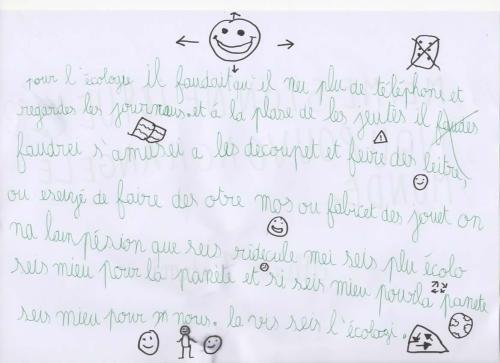 pour l'écologie il faudait qu'il neu plu de téléphone et
regardes les journaus. et á la plase de les jeutés il
faudrei s'amusei a les découpet et feire des leitre,
ou eseiyé de faire des otre mos ou fabicet des jouet on
na l'anpésion que seis ridécule mei seis plu écolo
seis mieu pour la panète et si seis mieu pour la panete
seis mieu pour nous. la vis seis l'écologi.